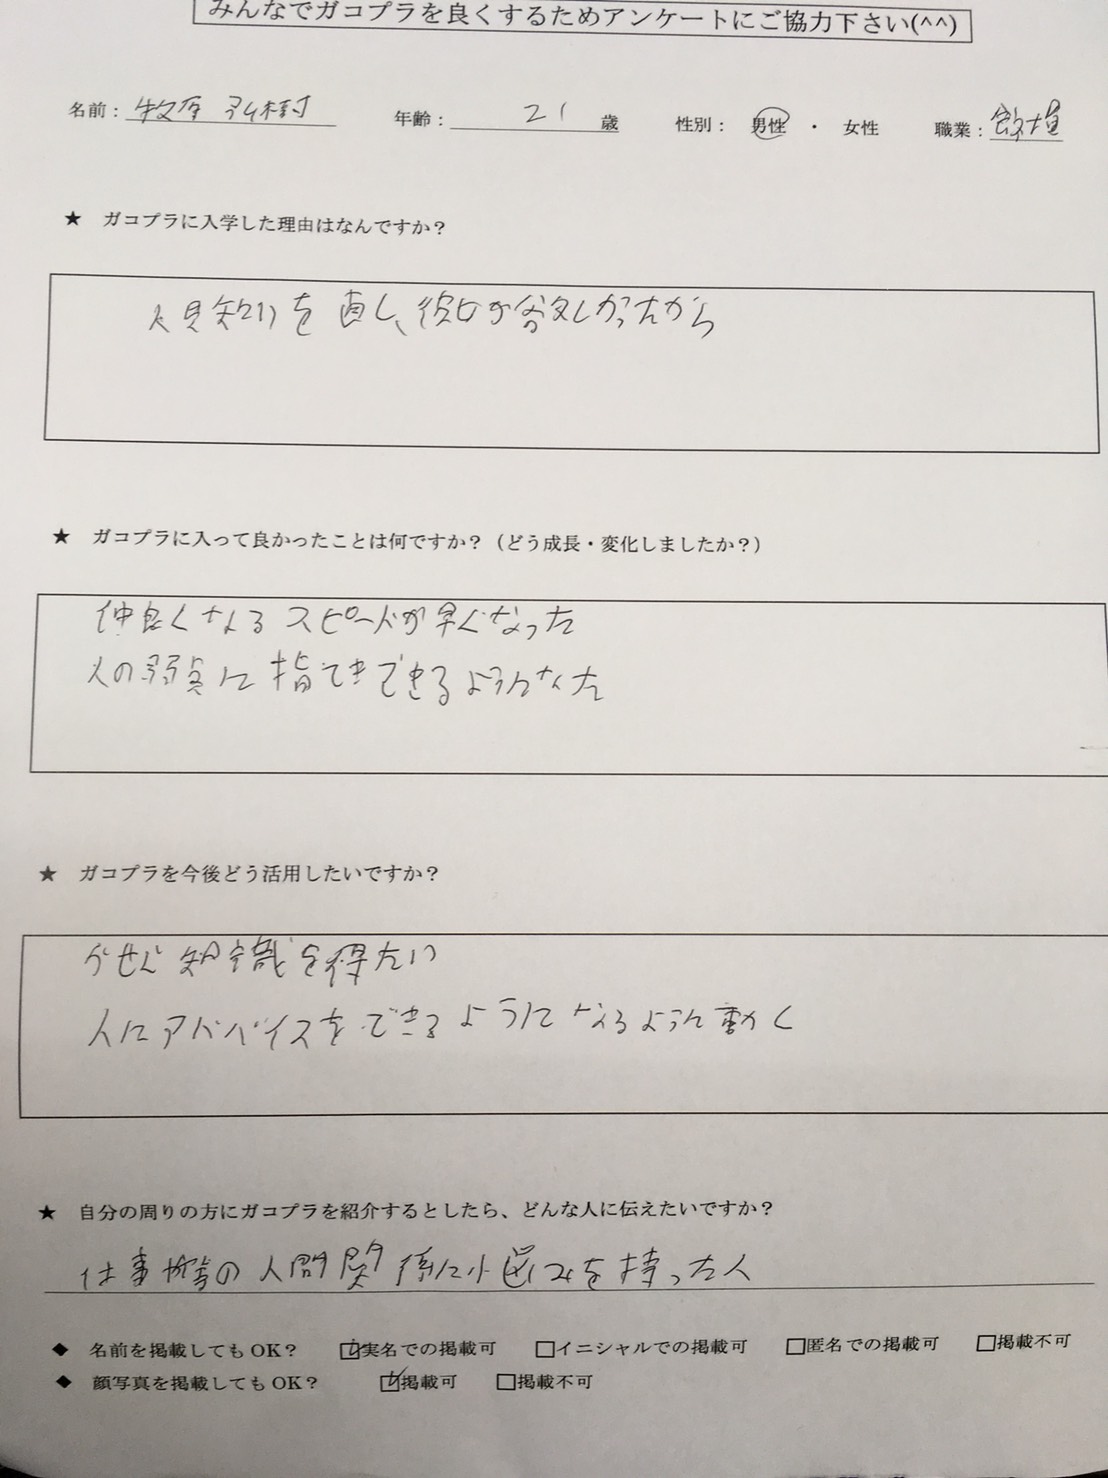 みんなでガコプラを良くするためアンケートにご協力下さい(^^)
名前： 牧原 弘樹 年齢： 21 歳 性別： 男性 ・ 女性 職業：
★ ガコプラに入学した理由はなんですか？
人見知りを直し、彼女が欲しかったから
★ ガコプラに入って良かったことは何ですか？（どう成長・変化しましたか？）
仲良くなるスピードが早くなった
人の弱点に指てきできるようになった
★ ガコプラを今後どう活用したいですか？
知識を得たい
人にアドバイスをできるようになるように動く
★ 自分の周りの方にガコプラを紹介するとしたら、どんな人に伝えたいですか？
仕事場の人間関係に悩みを持った人
◆ 名前を掲載してもOK？ ☑実名での掲載可 □イニシャルでの掲載可 □匿名での掲載可 □掲載不可
◆ 顔写真を掲載してもOK？ ☑掲載可 □掲載不可